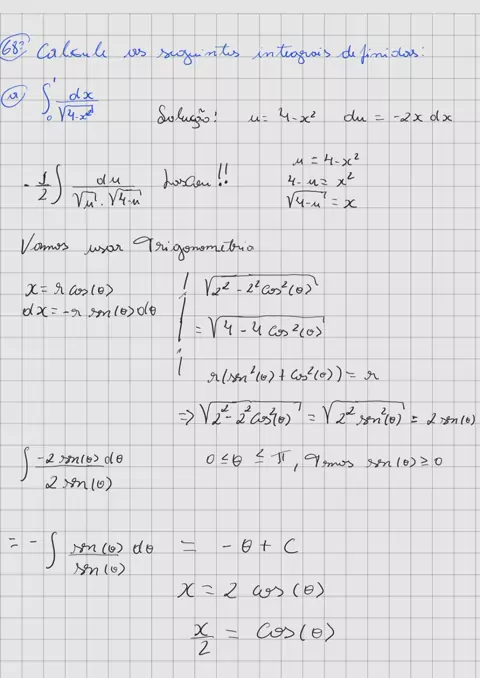 68ª Calcule as seguintes integrais definidas:
a) ∫₀¹ dx/√(4-x²) Solução! u = 4-x² du = -2x dx
-1/2 ∫ du/(√u · √(4-u)) !! u = 4-x²
4-u = x²
√(4-u) = x
Vamos usar Trigonometria
x = r cos(θ) √(2² - 2² cos²(θ))
dx = -r sen(θ) dθ = √(4 - 4 cos²(θ))
r(sen²(θ) + cos²(θ)) = r
⇒ √(2² - 2² cos²(θ)) = √(2² sen²(θ)) = 2 sen(θ)
∫ -2 sen(θ) dθ / 2 sen(θ) 0 ≤ θ ≤ π, Temos sen(θ) ≥ 0
= - ∫ sen(θ) dθ / sen(θ) = -θ + C
x = 2 cos(θ)
x/2 = cos(θ)